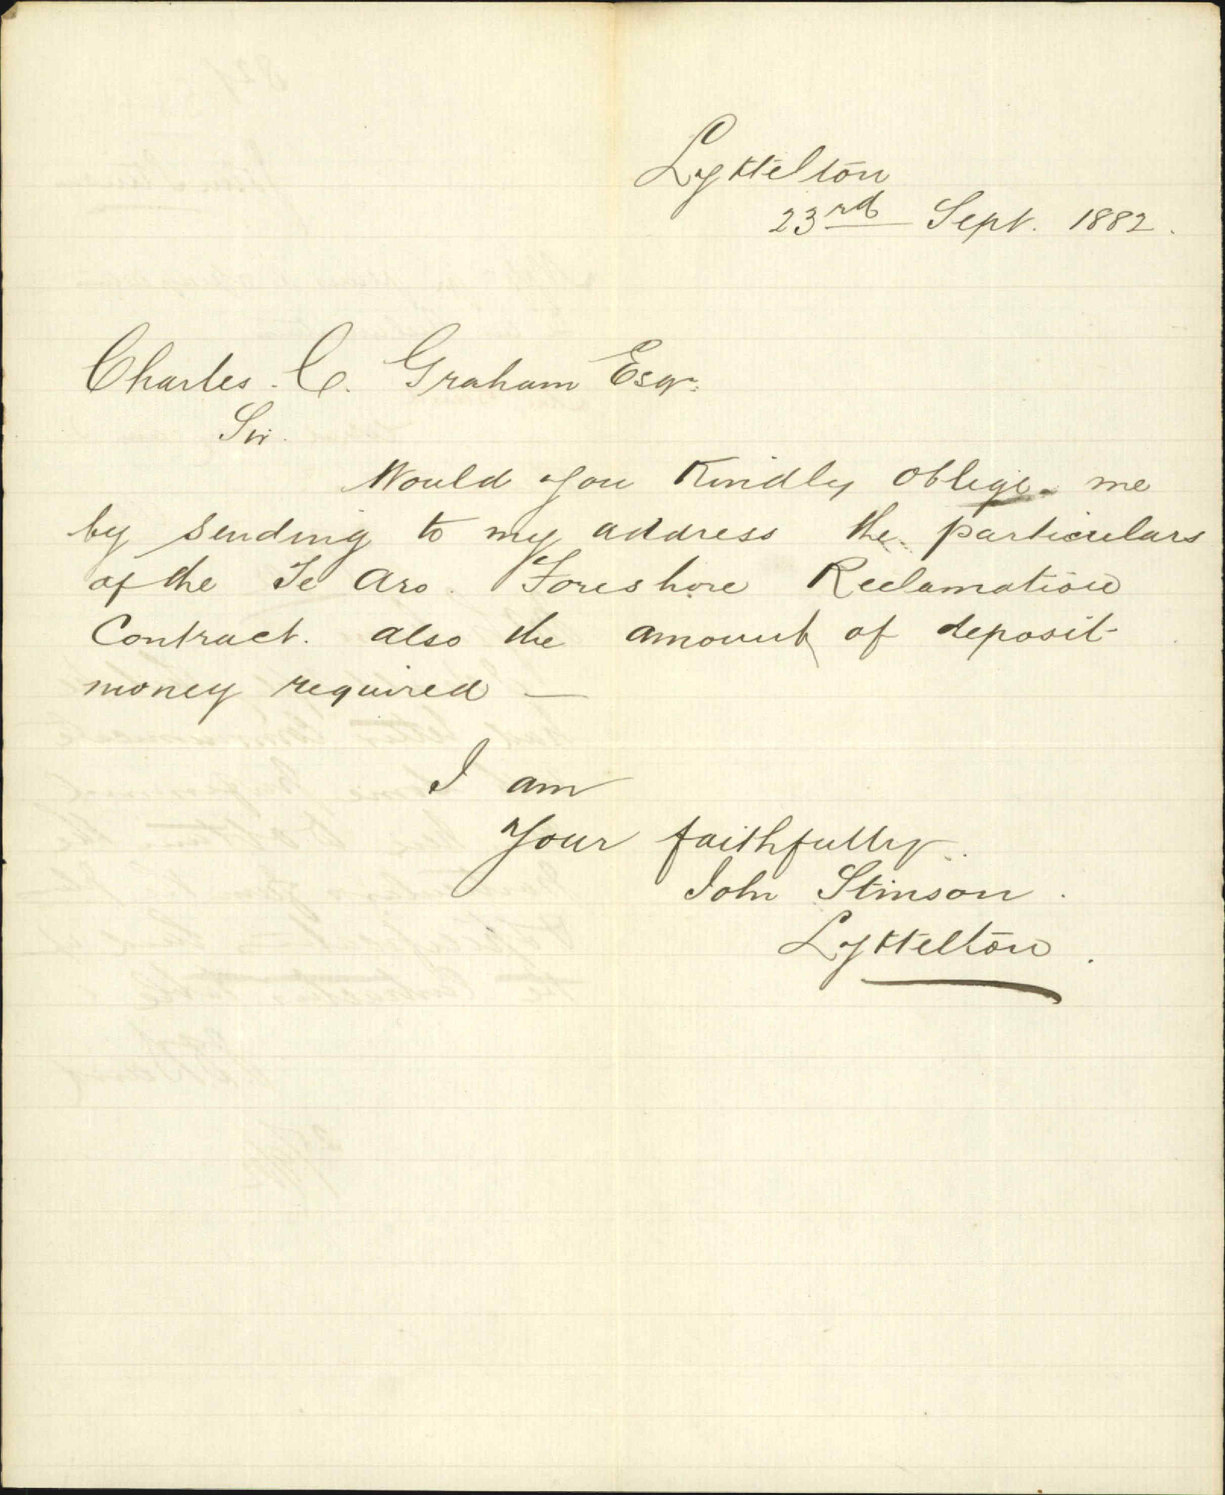 Lyttelton
23rd Sept. 1882.
Charles. C. Graham Esqr.
Sir.
Would you Kindly oblige me
by sending to my address the particulars
of the Te Aro. Foreshore Reclamation
Contract. also the amount of deposit
money required —
I am
Your faithfully.
John Stinson.
Lyttelton.